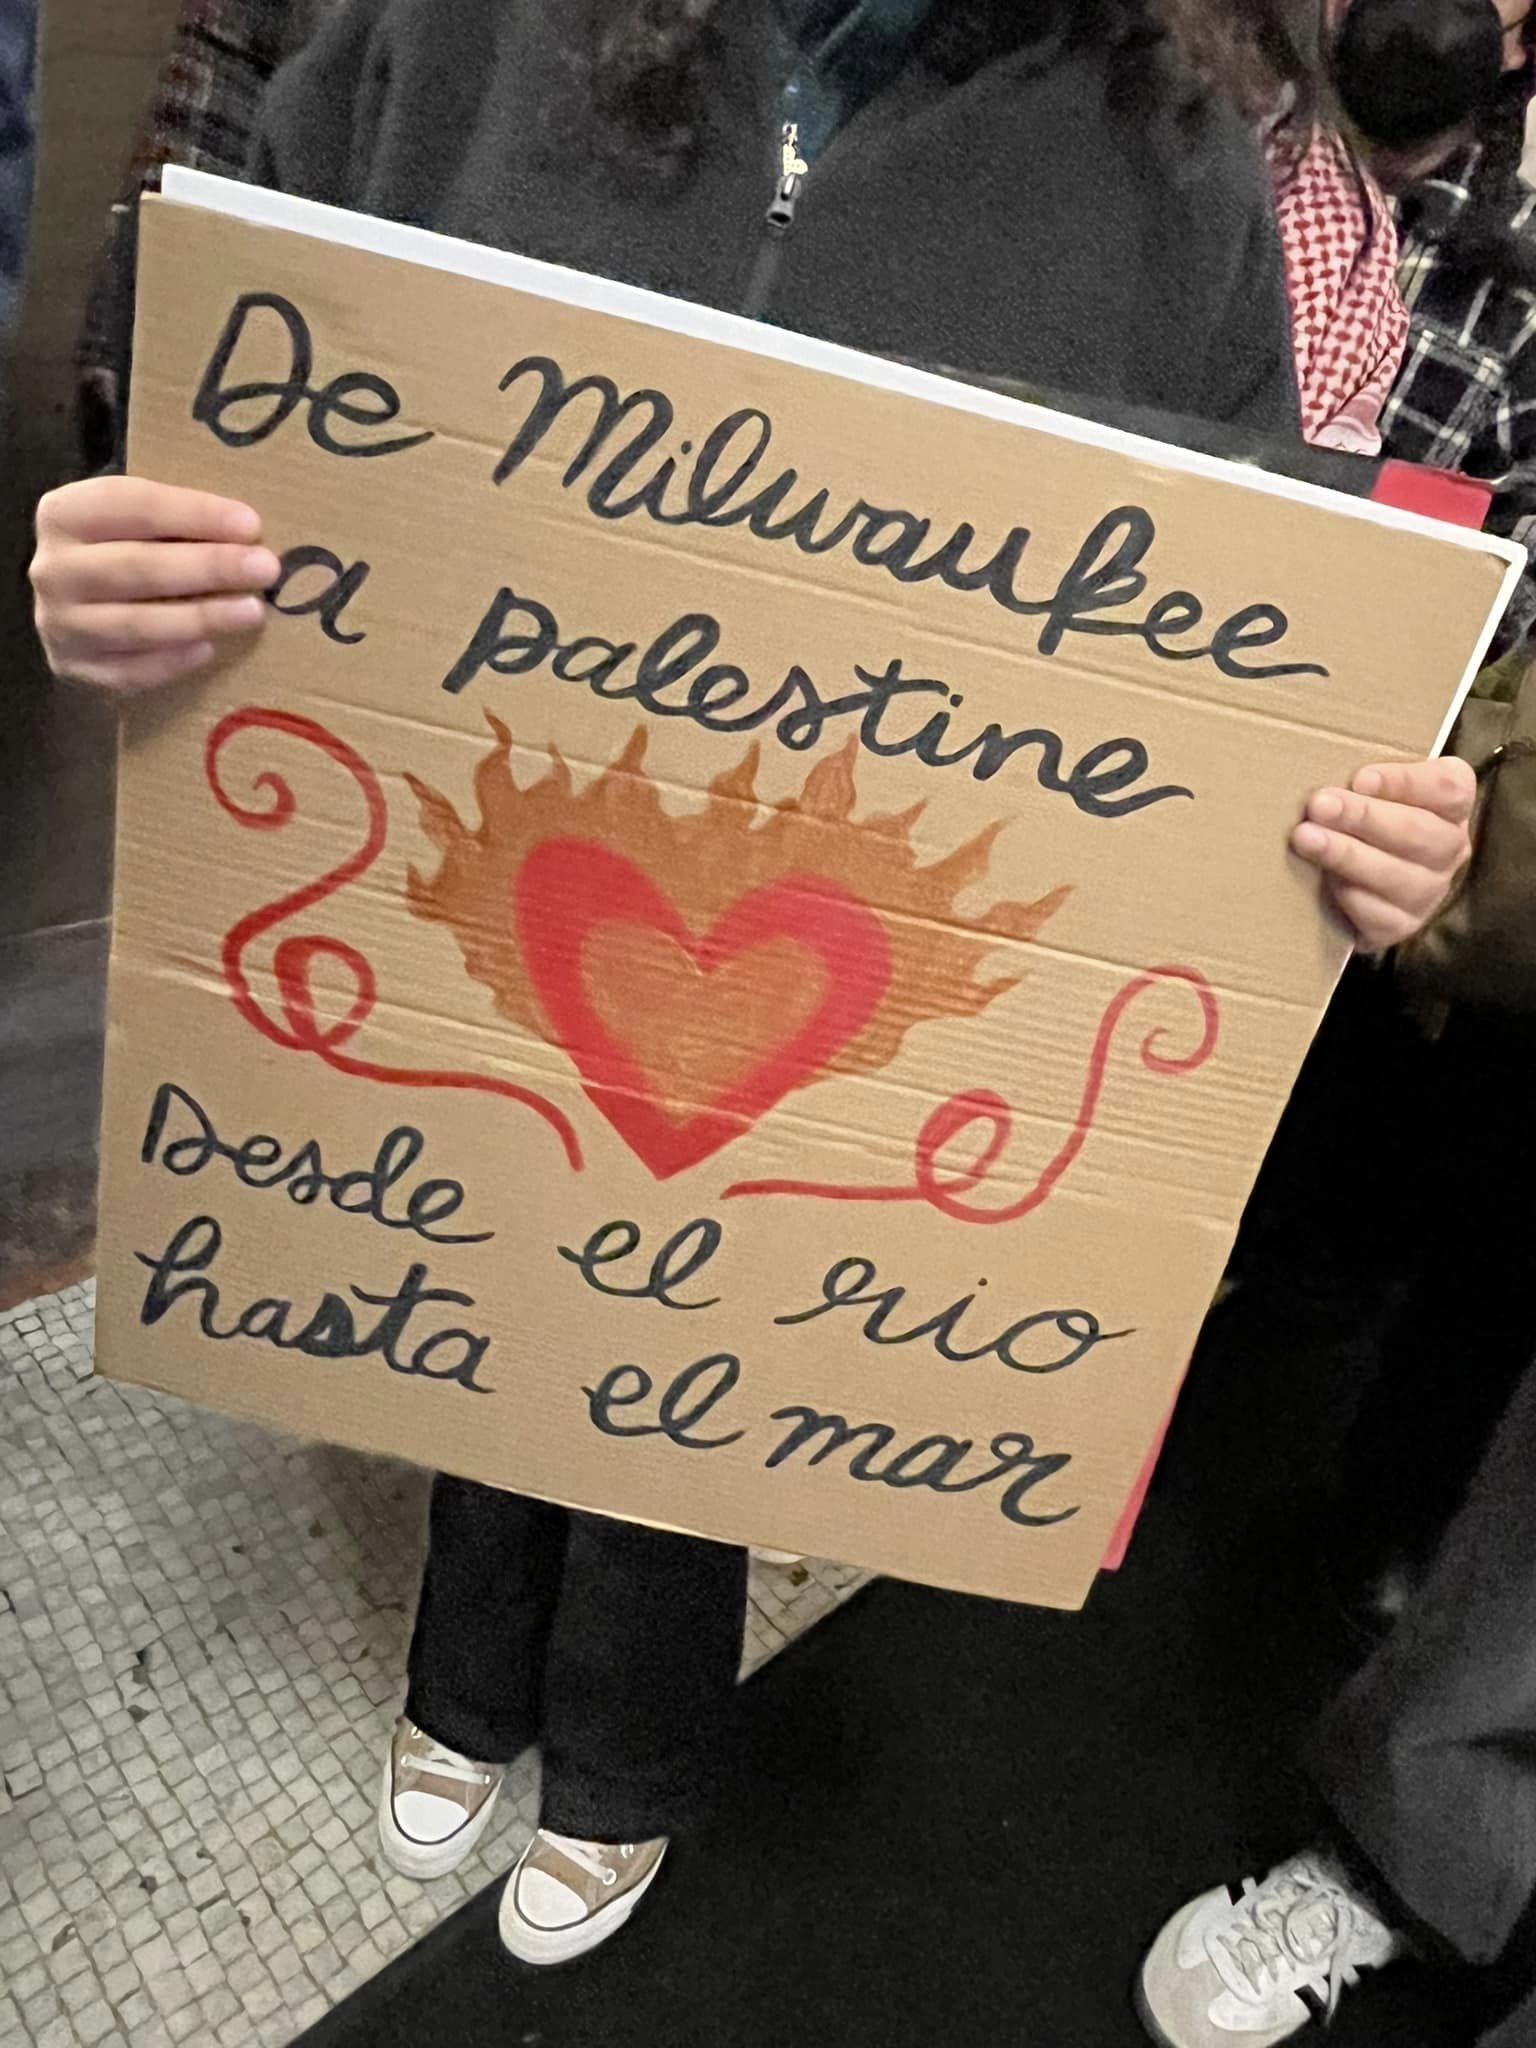 De Milwaukee
a palestine
Desde el rio
hasta el mar